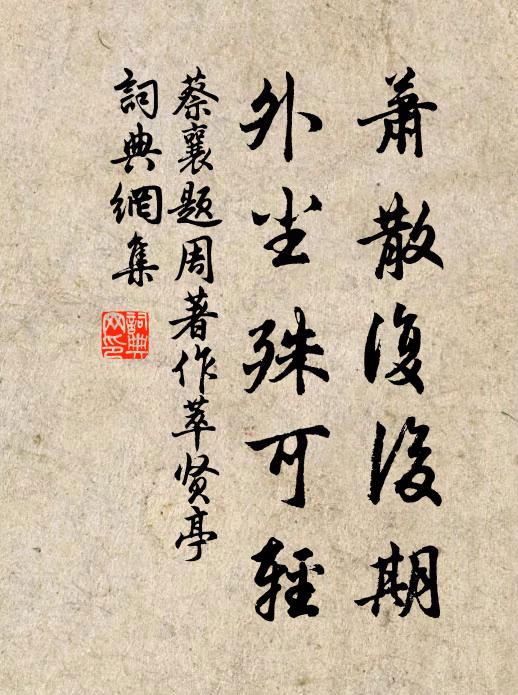 蕭散復後期
外尘殊可輕
蔡襄题周著作萃贤亭
詞典網集
詞典
网印